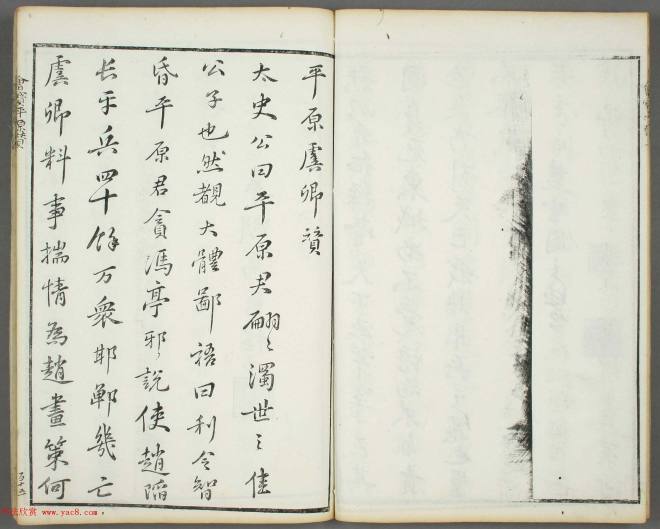 平原虞卿贊
太史公曰平原君翩々濁世之佳
公子也然覩大體鄙語曰利令智
昏平原君貪馮亭邪說使趙陷
长平兵四十馀万衆邯鄲幾亡
虞卿料事揣情為趙畫策何
書法欣赏 www.yac8.com